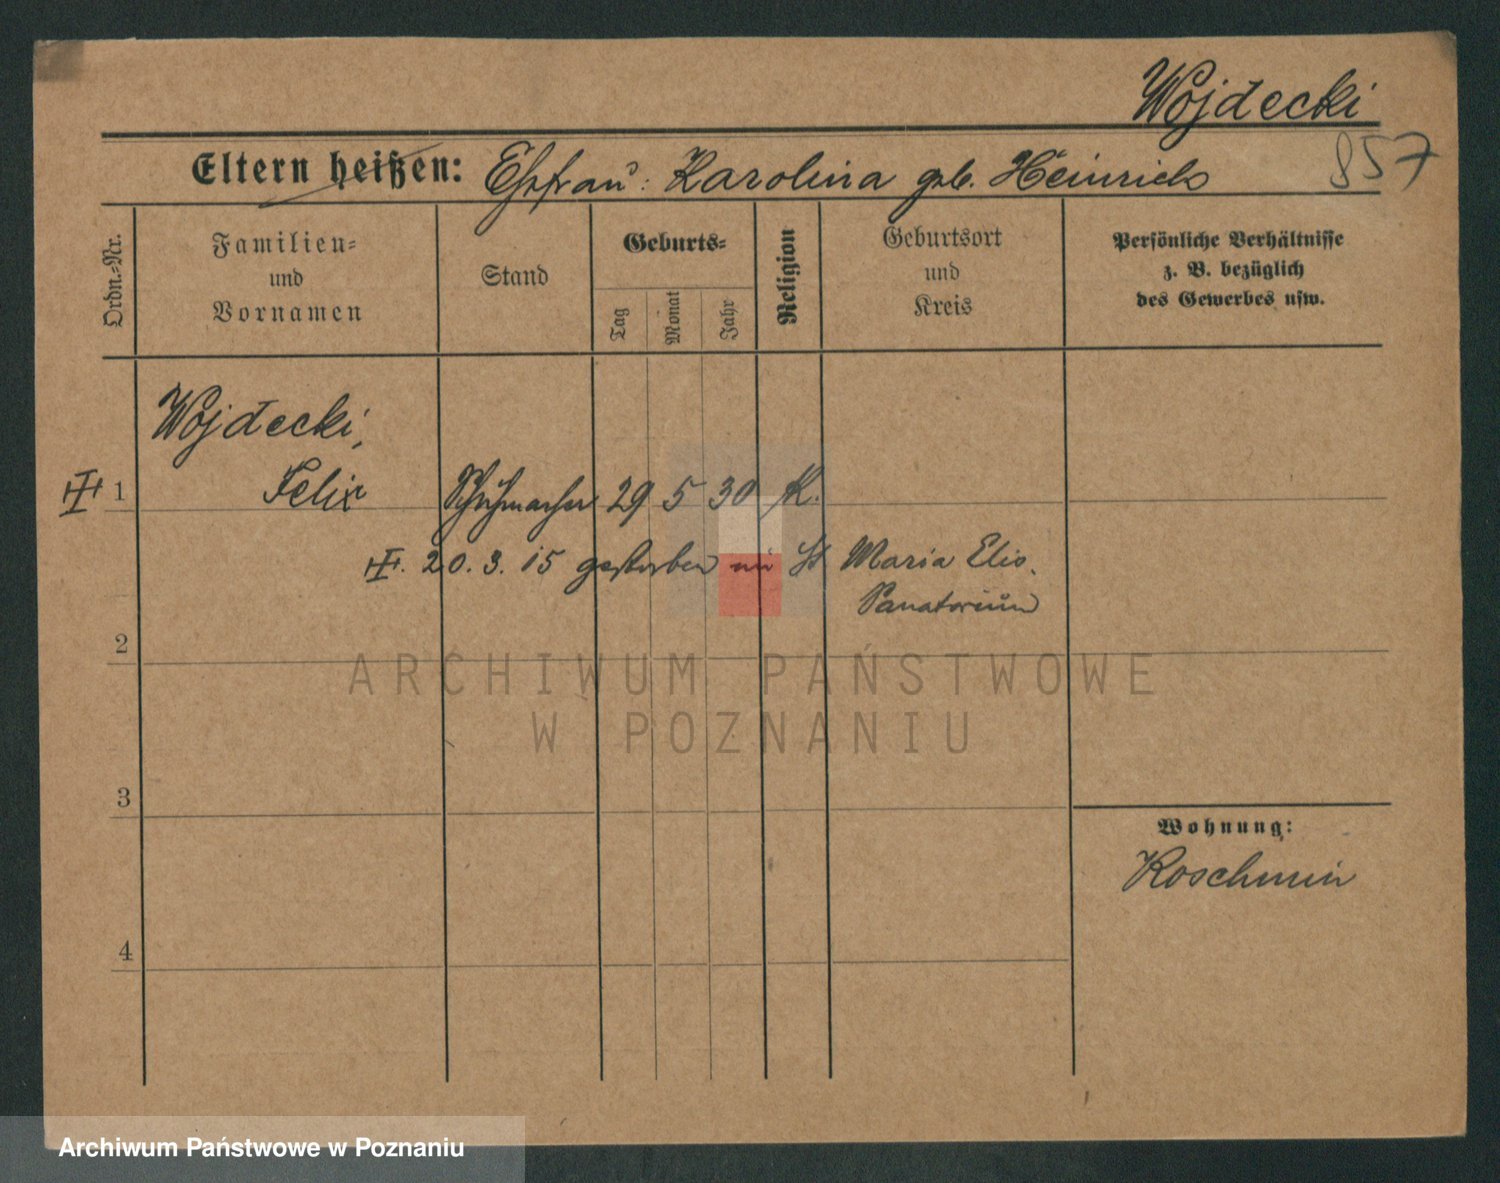 Wojdecki
857
Eltern heißen: Ehefrau: Karolina geb. Heinrich
Ordn.-Nr.
Familien- und Vornamen
Stand
Geburts-
Tag
Monat
Jahr
Religion
Geburtsort und Kreis
Persönliche Verhältnisse
z. B. bezüglich
des Gewerbes usw.
Wojdecki,
1 Felix Schuhmacher 29 5 30 K.
20. 3. 15 gestorben im St Maria Elis.
Sanatorium
2
ARCHIWUM PAŃSTWOWE
W POZNANIU
3
Wohnung:
Koschmin
4
Archiwum Państwowe w Poznaniu